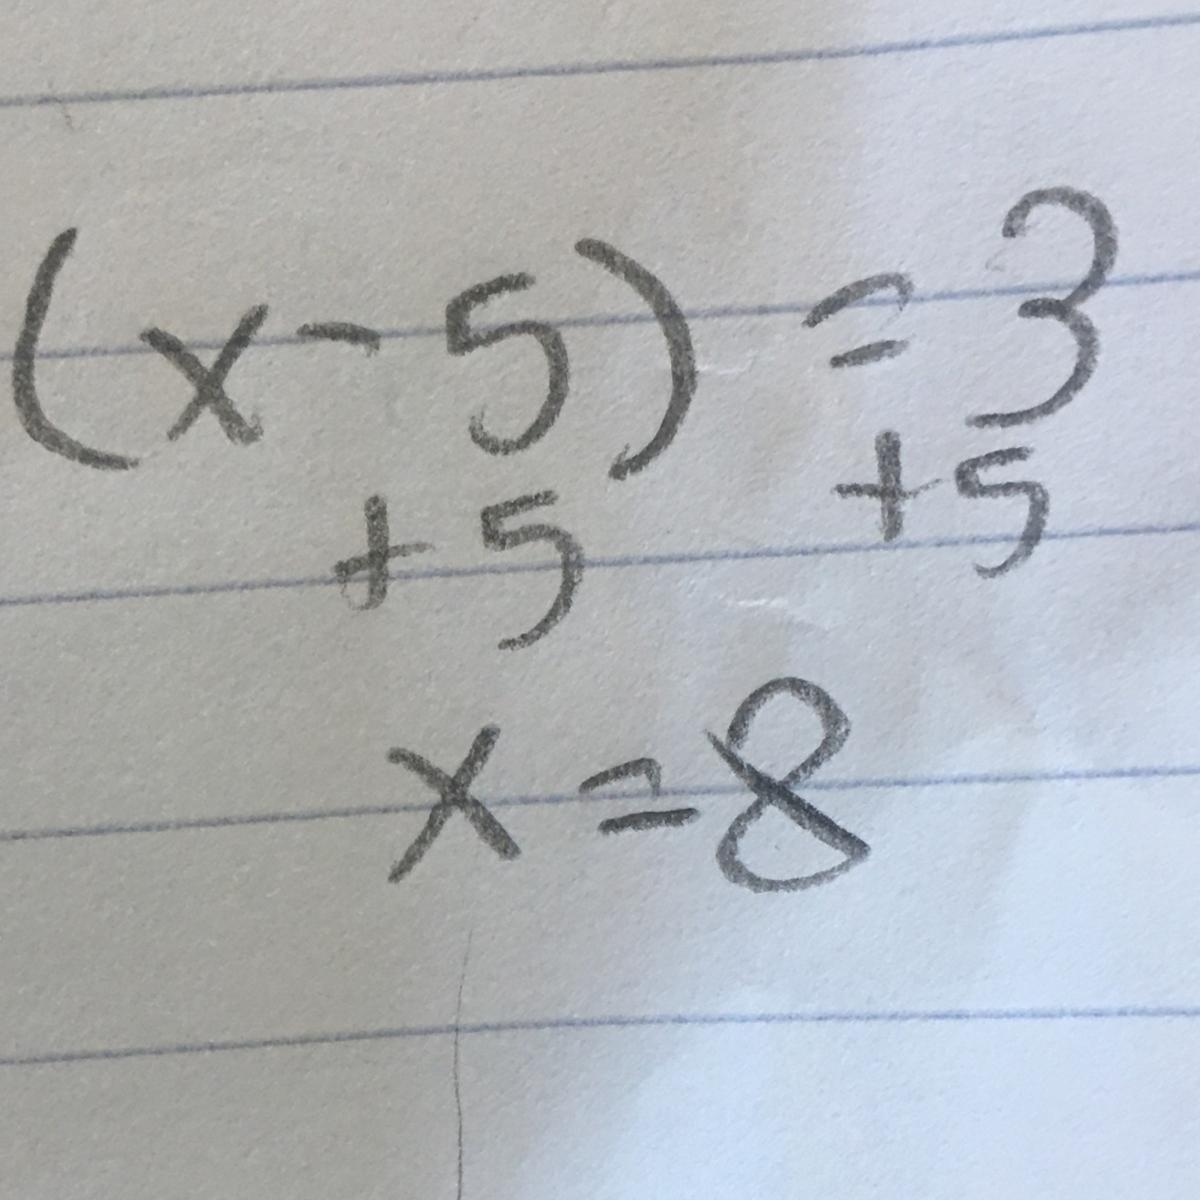 (x-5) = 3
+5 +5
x=8